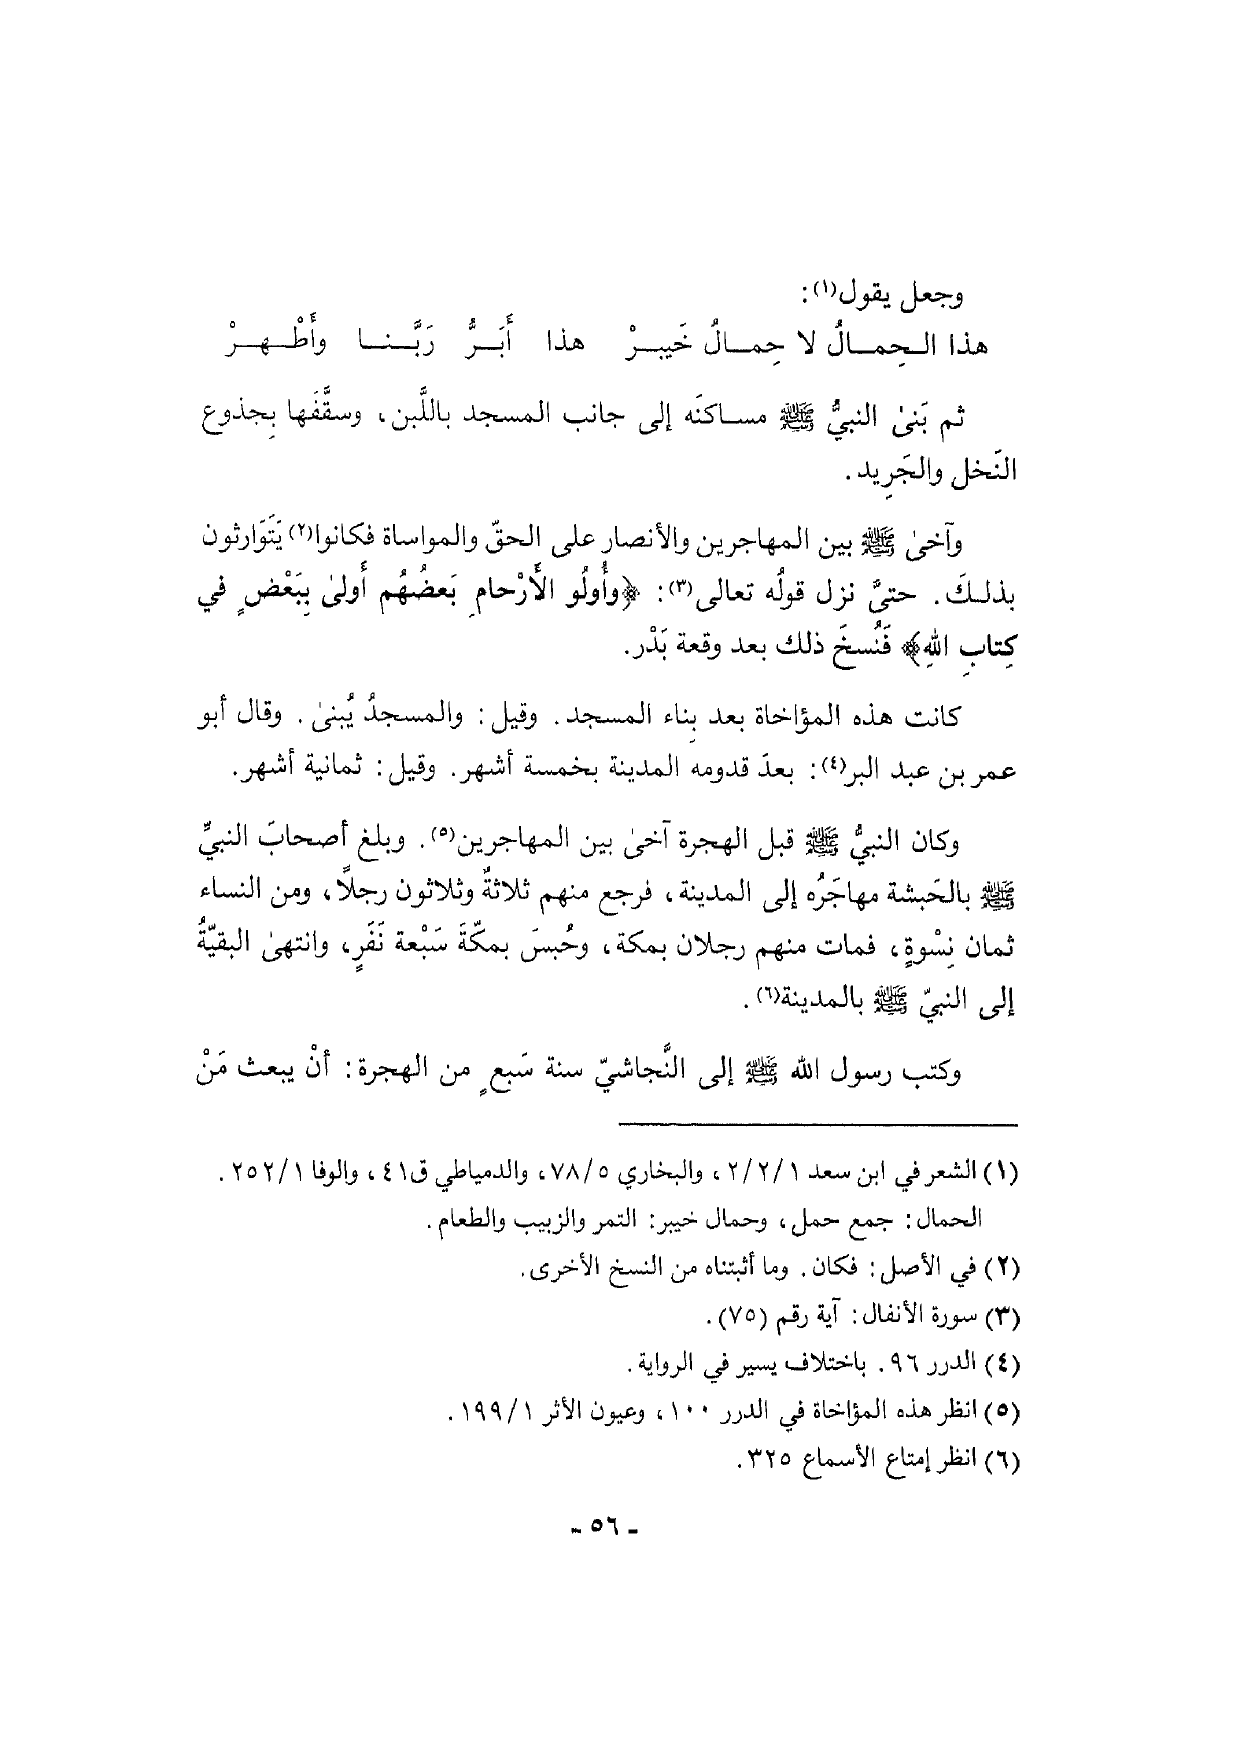 وجعل يقول(١):
هذا الـحِمـالُ لا حِمـالُ خَيبـرْ هذا أَبَـرُّ رَبَّـنـا وأَطْـهـرْ
ثم بَنىٰ النبيُّ ﷺ مساكنَه إلى جانب المسجد باللَّبن، وسقَّفَها بِجذوع
النَخل والجَرِيد.
وآخىٰ ﷺ بين المهاجرين والأنصار على الحقّ والمواساة فكانوا(٢) يَتَوَارثون
بذلـكَ. حتىَّ نزل قولُه تعالى(٣): ﴿وأُولُو الأَرْحامِ بَعضُهُم أَولىٰ بِبَعْضٍ في
كِتابِ اللهِ﴾ فَنُسخَ ذلك بعد وقعة بَدْر.
كانت هذه المؤاخاة بعد بِناء المسجد. وقيل: والمسجدُ يُبنىٰ. وقال أبو
عمر بن عبد البر(٤): بعدَ قدومه المدينة بخمسة أشهر. وقيل: ثمانية أشهر.
وكان النبيُّ ﷺ قبل الهجرة آخىٰ بين المهاجرين(٥). وبلغ أصحابَ النبيِّ
ﷺ بالحَبشة مهاجَرُه إلى المدينة، فرجع منهم ثلاثةٌ وثلاثون رجلًا، ومن النساء
ثمان نِسْوةٍ، فمات منهم رجلان بمكة، وحُبسَ بمكّةَ سَبْعة نَفَرٍ، وانتهىٰ البقيَّةُ
إلى النبيّ ﷺ بالمدينة(٦).
وكتب رسول الله ﷺ إلى النَّجاشيّ سنة سَبعٍ من الهجرة: أنْ يبعث مَنْ
(١) الشعر في ابن سعد ٢/٢/١، والبخاري ٧٨/٥، والدمياطي ق٤١، والوفا ٢٥٢/١.
الحمال: جمع حمل، وحمال خيبر: التمر والزبيب والطعام.
(٢) في الأصل: فكان. وما أثبتناه من النسخ الأخرى.
(٣) سورة الأنفال: آية رقم (٧٥).
(٤) الدرر ٩٦. باختلاف يسير في الرواية.
(٥) انظر هذه المؤاخاة في الدرر ١٠٠، وعيون الأثر ١٩٩/١.
(٦) انظر إمتاع الأسماع ٣٢٥.
- ٥٦ -